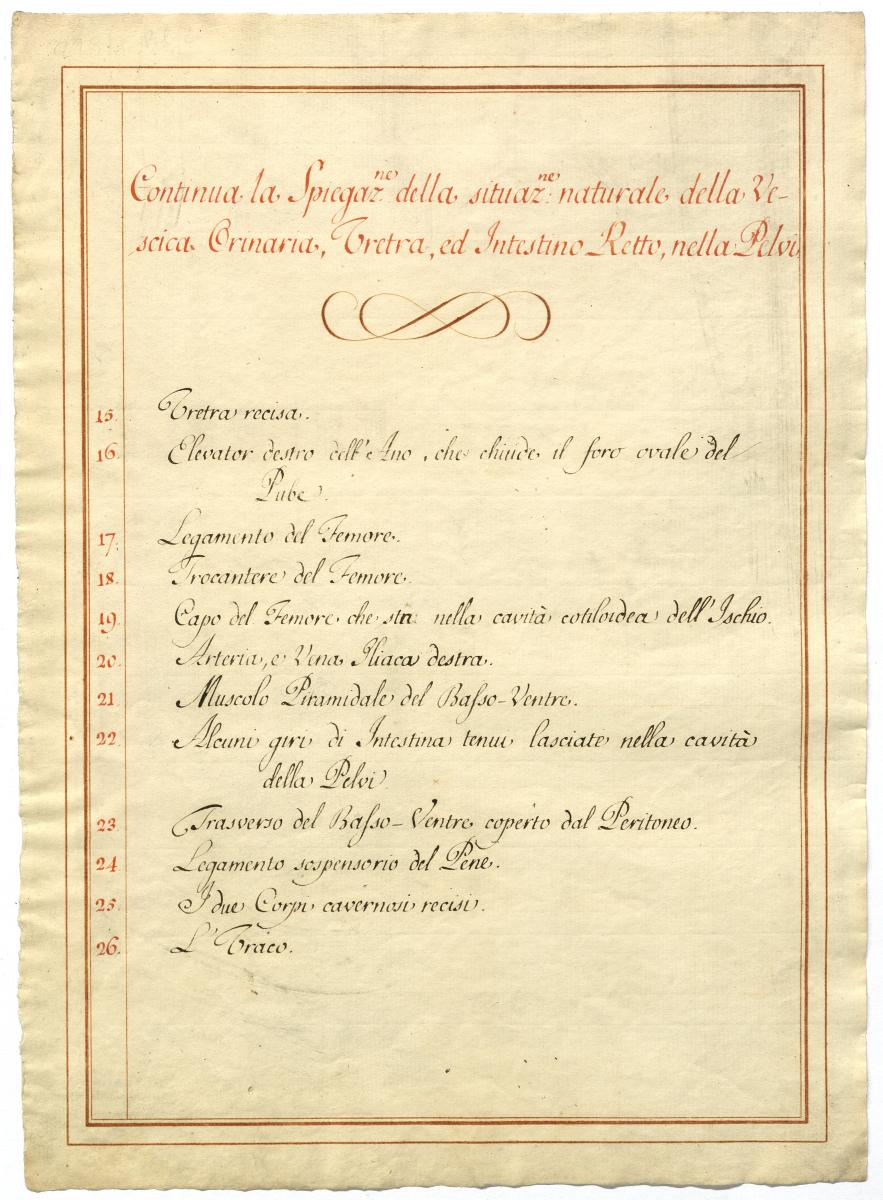 Continua la Spiegaz.ne della situaz.ne naturale della Ve-
scica Orinaria, Uretra, ed Intestino Retto, nella Pelvi
15. Uretra recisa.
16. Elevator destro dell'Ano, che chiude il foro ovale del
Pube.
17. Legamento del Femore.
18. Trocantere del Femore.
19. Capo del Femore che sta nella cavità cotiloidea dell'Ischio.
20. Arteria, e Vena Iliaca destra.
21 Muscolo Piramidale del Basso-Ventre.
22 Alcuni giri di Intestina tenui lasciate nella cavità
della Pelvi
23. Trasverso del Basso-Ventre coperto dal Peritoneo.
24 Legamento sospensorio del Pene.
25. I due Corpi cavernosi recisi.
26. L'Uraco.